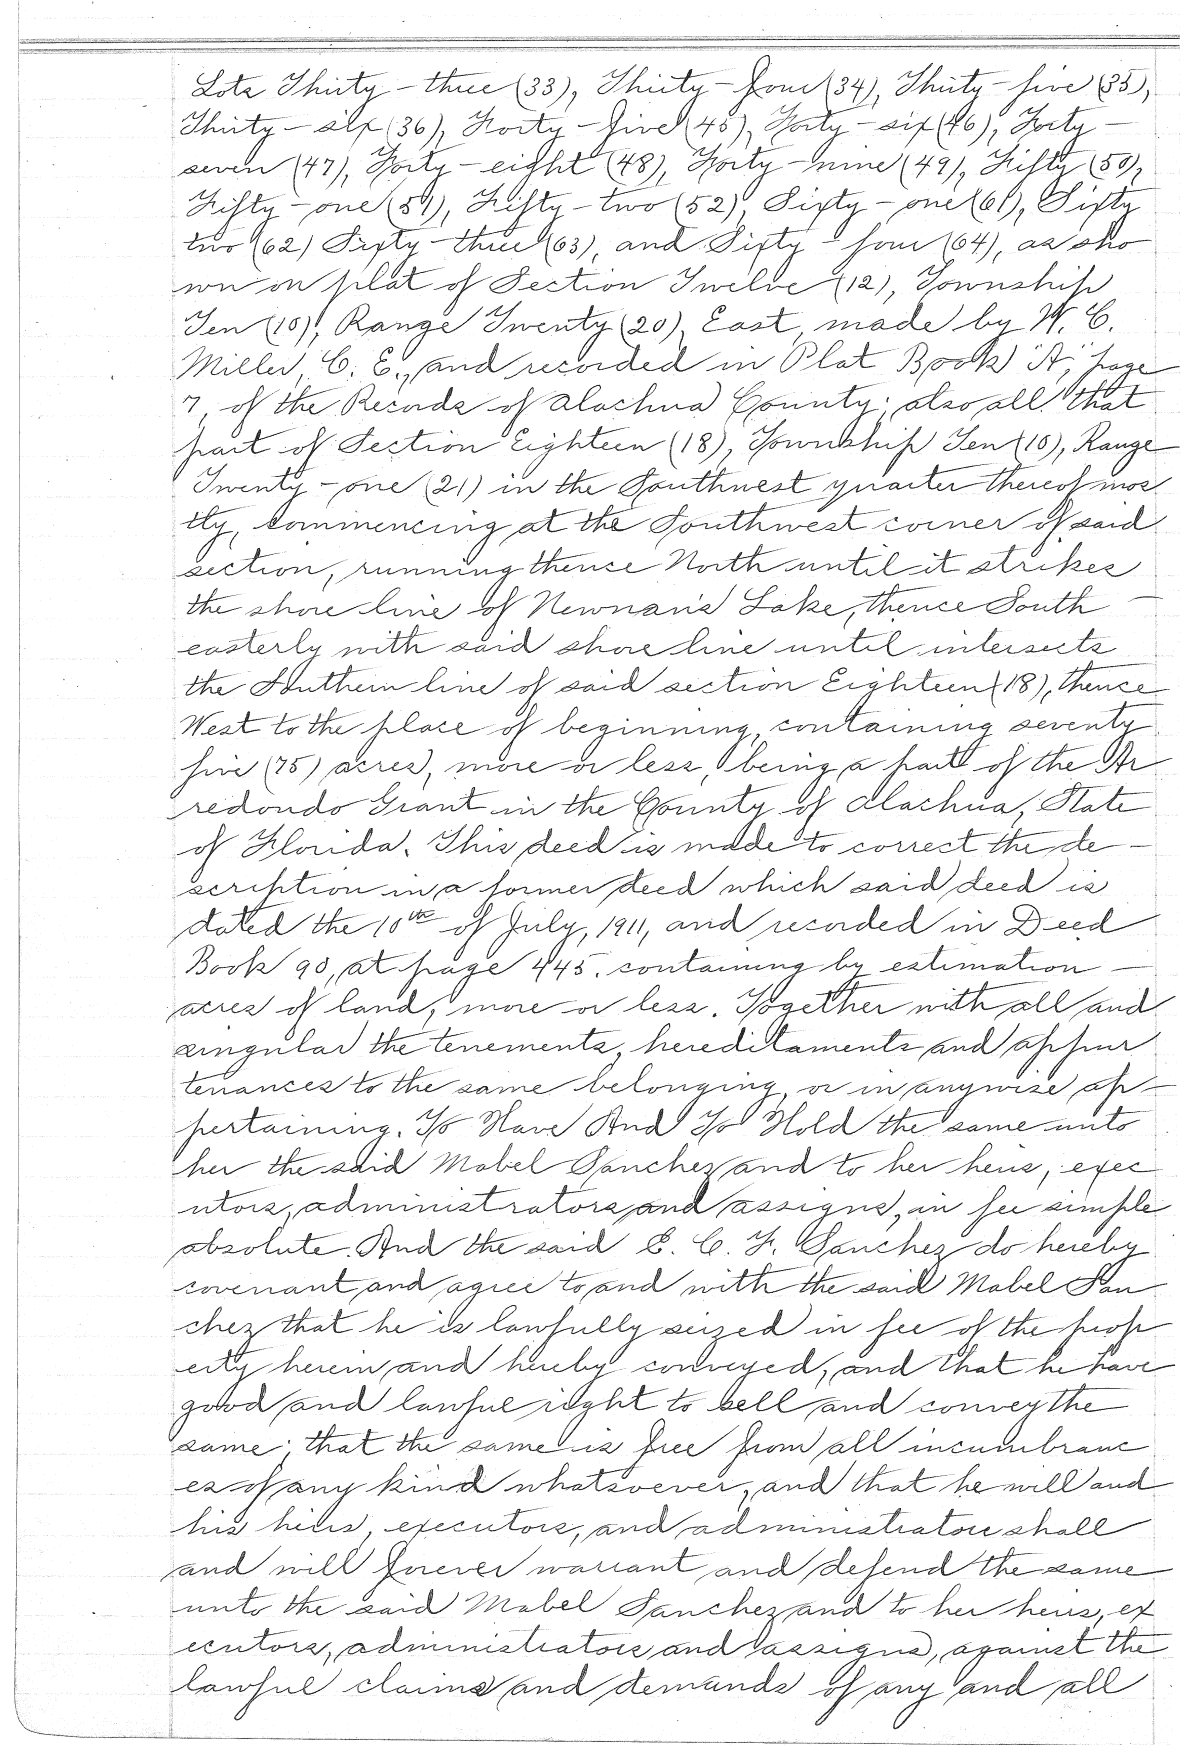 Lots Thirty-three (33), Thirty-four (34), Thirty-five (35),
Thirty-six (36), Forty-five (45), Forty-six (46), Forty-
seven (47), Forty-eight (48), Forty-nine (49), Fifty (50),
Fifty-one (51), Fifty-two (52), Sixty-one (61), Sixty
two (62) Sixty-three (63), and Sixty-four (64), as sho
wn on plat of Section Twelve (12), Township
Ten (10), Range Twenty (20), East, made by W. C.
Miller, C. E., and recorded in Plat Book "A", page
7, of the Records of Alachua County; also all that
part of Section Eighteen (18), Township Ten (10), Range
Twenty-one (21) in the Southwest quarter thereof mos
tly, commencing at the Southwest corner of said
section, running thence North until it strikes
the shore line of Newnan's Lake, thence South-
easterly with said shore line until intersects
the Southern line of said section Eighteen (18), thence
West to the place of beginning, containing seventy
five (75) acres, more or less, being a part of the Ar
redondo Grant in the County of Alachua, State
of Florida. This deed is made to correct the de-
scription in a former deed which said deed is
dated the 10th of July, 1911, and recorded in Deed
Book 90, at page 445. containing by estimation —
acres of land, more or less. Together with all and
singular the tenements, hereditaments and appur
tenances to the same belonging, or in anywise ap-
pertaining. To Have And To Hold the same unto
her the said Mabel Sanchez and to her heirs, exec
utors, administrators and assigns, in fee simple
absolute. And the said E. C. F. Sanchez do hereby
covenant and agree to and with the said Mabel San
chez that he is lawfully seized in fee of the prop
erty herein and hereby conveyed, and that he have
good and lawful right to sell and convey the
same; that the same is free from all incumbranc
es of any kind whatsoever, and that he will and
his heirs, executors, and administrators shall
and will forever warrant and defend the same
unto the said Mabel Sanchez and to her heirs, ex
ecutors, administrators and assigns, against the
lawful claims and demands of any and all